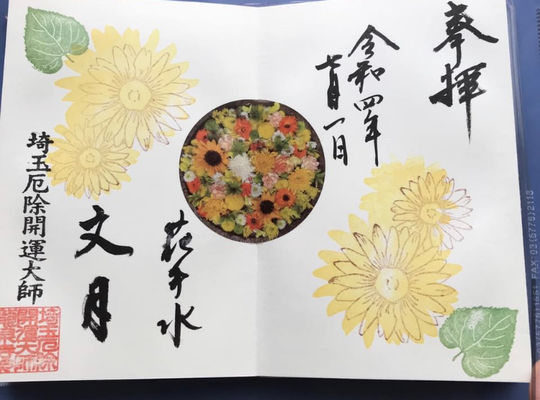 奉拝
令和四年
七月一日
花手水
文月
埼玉厄除開運大師
埼玉厄除
開運大師